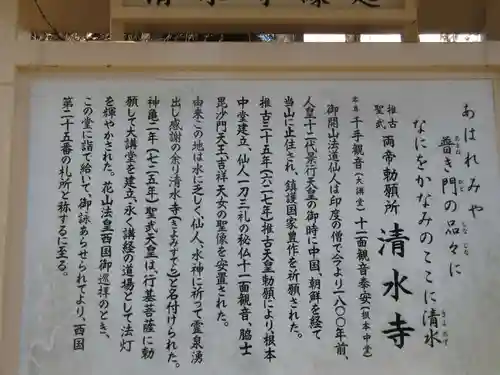 あはれみや
普き門の品々に
あまね
かど
しな
じな
なにをかなみのここに清水
きよ
みず
推古
聖武
両帝勅願所
清水寺
本尊
千手観音
(大講堂)
十一面観音奉安
(根本中堂)
御開山法道仙人は印度の僧で今より一八〇〇年前、
人皇十二代景行天皇の御時に中国、朝鮮を経て
当山に止住され、鎮護国家豊作を祈願された。
推古三十五年(六二七年)推古天皇勅願により、根本
中堂建立、仙人一刀三礼の秘仏十一面観音、脇士
毘沙門天王、吉祥天女の聖像を安置された。
由来この地は水に乏しく、仙人、水神に祈って霊泉湧
出し感謝の余り清水寺(きよみずでら)と名付けられた。
神亀二年(七二五年)聖武天皇は、行基菩薩に勅
願して大講堂を建立、永く講経の道場として法灯
を輝やかされた。花山法皇西国御巡拝のとき、
この堂に詣で給いて、御詠あらせられてより、西国
第二十五番の札所と称するに至る。